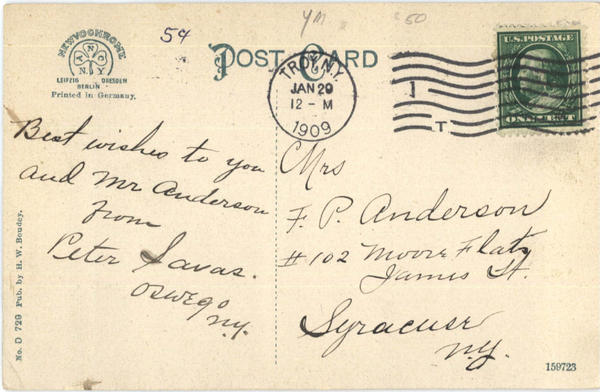 5¢
YM
50
NEWVOCHROME
ANC
NY
LEIPZIG DRESDEN
BERLIN
Printed in Germany.
POST CARD
TROY, N.Y.
JAN 29
12 - M
1909
1
T
U.S. POSTAGE
ONE CENT
Best wishes to you
and Mr Anderson
from
Peter Savas.
Oswego
N.Y.
Mrs
F. P. Anderson
#102 Moore Flats
James St.
Syracuse
N.Y.
No. D 729 Pub. by H. W. Boudey.
159723